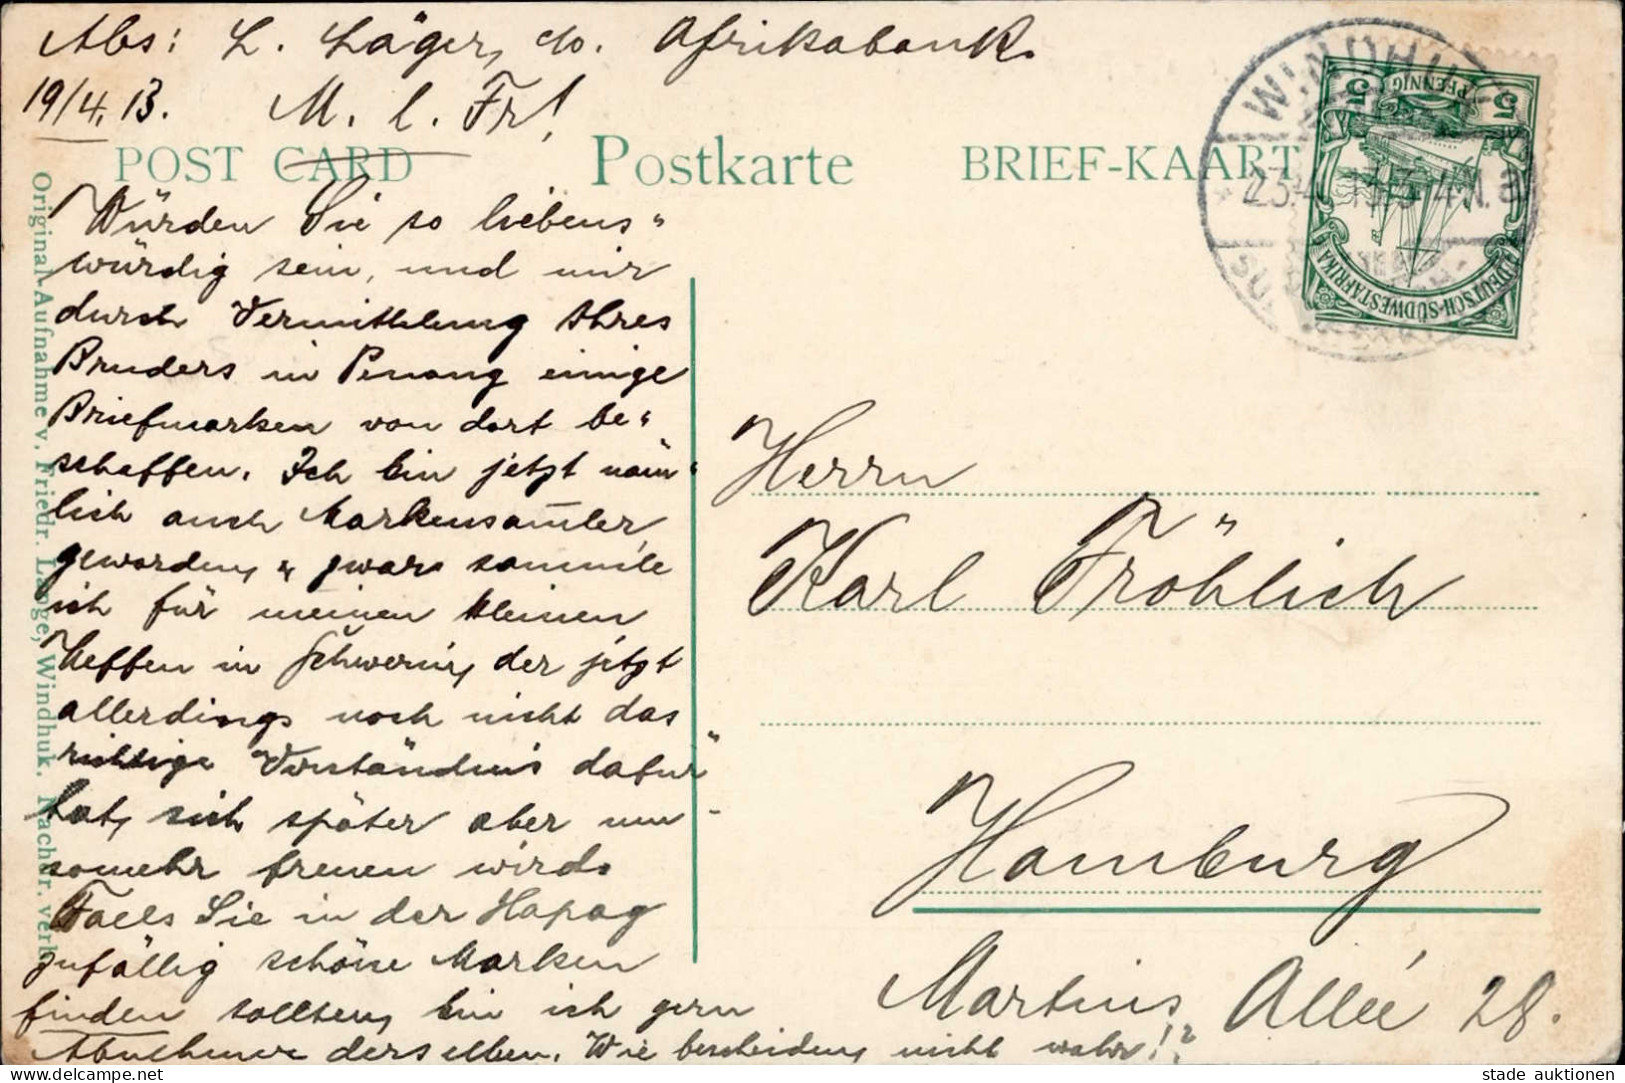 Abs: L. Läger, do. Afrikabank.
19/4. 13. M. l. Fr!
POST CARD Postkarte BRIEF-KAART
Würden Sie so liebens"
würdig sein, und mir
durch Vermittelung Ihres
Bruders in Penang einige
Briefmarken von dort be"
schaffen. Ich bin jetzt näm"
lich auch Markensam̅ler
geworden, u zwar sammle
ich für meinen kleinen
Neffen in Schwerin, der jetzt
allerdings noch nicht das
richtige Verständnis dafür
hat, sich später aber um-
somehr freuen wird.
Falls Sie in der Hapag
zufällig schöne Marken
finden sollten, bin ich gern
Abnehmer derselben. Wie bescheiden, nicht wahr!?
Original-Aufnahme v. Friedr. Lange, Windhuk. Nachdr. verb.
WINDHUK
23.4.13 3-4N. a
5 PFENNIG 5
DEUTSCH-SÜDWESTAFRIKA
Herrn
Karl Fröhlich
Hamburg
Martins Allée 28.
stade auktionen